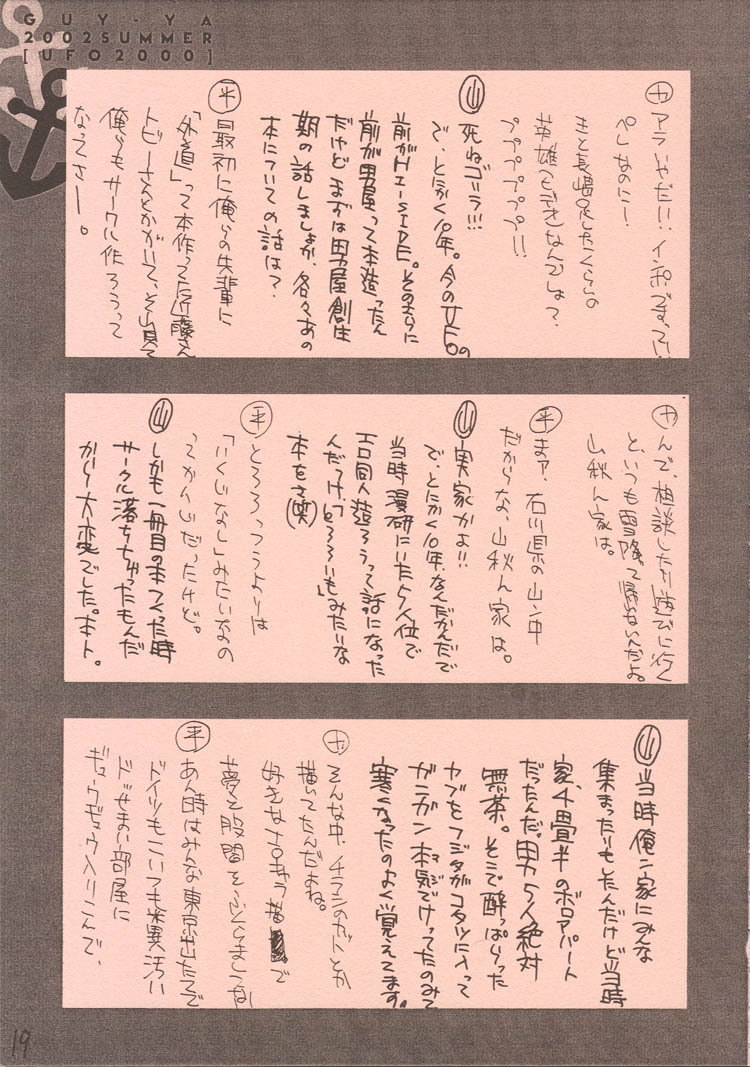 GUY-YA
2002SUMMER
[UFO2000]
アラいやだ!!インポですって
ペしゃのにー
きと長嶋
英雄
なんでしょ?
プププププププ!!
山 死ねゴラ!!!
で、とにかく10年。今のUFOの
前がHI-SIDE。そのまえに
前が男屋って本造ったん
だけどまずは男屋創生
期の話しましょか、各々あの
本についての話は?
平 最初に俺らの先輩に
「外道」って本作ってた近藤さん
トビーさんとかがいて、それ見て
俺らもサークル作ろうって
なってさー。
んで、相談したり遊びに行く
と、いつも雪降って帰れないんだよ。
山秋ん家は。
平 まァ、石川県の山ン中
だからな、山秋ん家は。
山 実家かよ!!
で、とにかく10年、なんだかんだで
当時漫研にいた5人位で
エロ同人造ろうって話になった
んだっけ、「とろろいも」みたいな
本をさ(笑)
平 とろろっつうよりは
「いくじなし」みたいなの
ってかんじだったけど。
山 しかも一冊目の本つくった時
サークル落ちちゃったもんだ
から大変でした。ホント。
山 当時俺ン家にみんな
集まったりもしたんだけど当時
家、4畳半のボロアパート
だったんだ。男5人絶対
無茶。そこで酔っぱらった
ヤブをフジタがコタツに入って
ガンガン本気でけってたのみて
マジ
寒くなったのよく覚えてます。
そんな中、チラシのカットとか
描いてたんだよね。
好きな
で
夢と股間をふくらましてな
平 あん時はみんな東京出たてで
ドイツもこいつも
汚い
ドせまい部屋に
ギュウギュウ入りこんで、
19